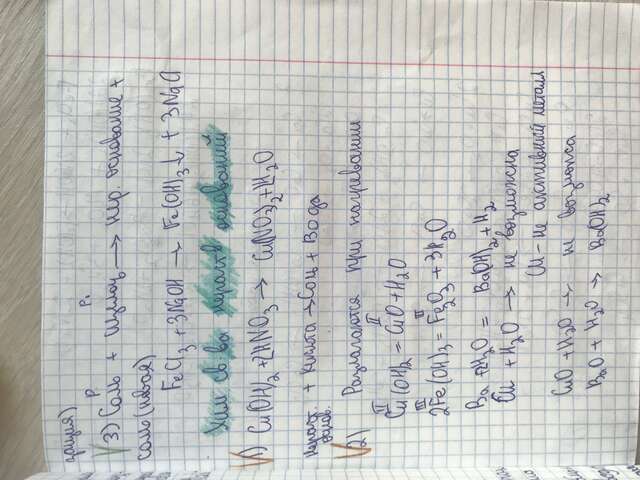 рация)
3) Соль + Щёлочь → нер. основание +
р. р.
соль (новая)
FeCl3 + 3NaOH → Fe(OH)3↓ + 3NaCl
Хим св-ва нераств оснований
1) Cu(OH)2 + 2HNO3 → Cu(NO3)2 + H2O
Нераст. основ. + Кислота → Соль + Вода
2) Разлагаются при нагревании
II II
Cu(OH)2 = CuO + H2O
III III
2Fe(OH)3 = Fe2O3 + 3H2O
Ba + 2H2O = Ba(OH)2 + H2
Cu + H2O → не возможна
Cu - не активный металл
CuO + H2O → не возможна
BaO + H2O → Ba(OH)2